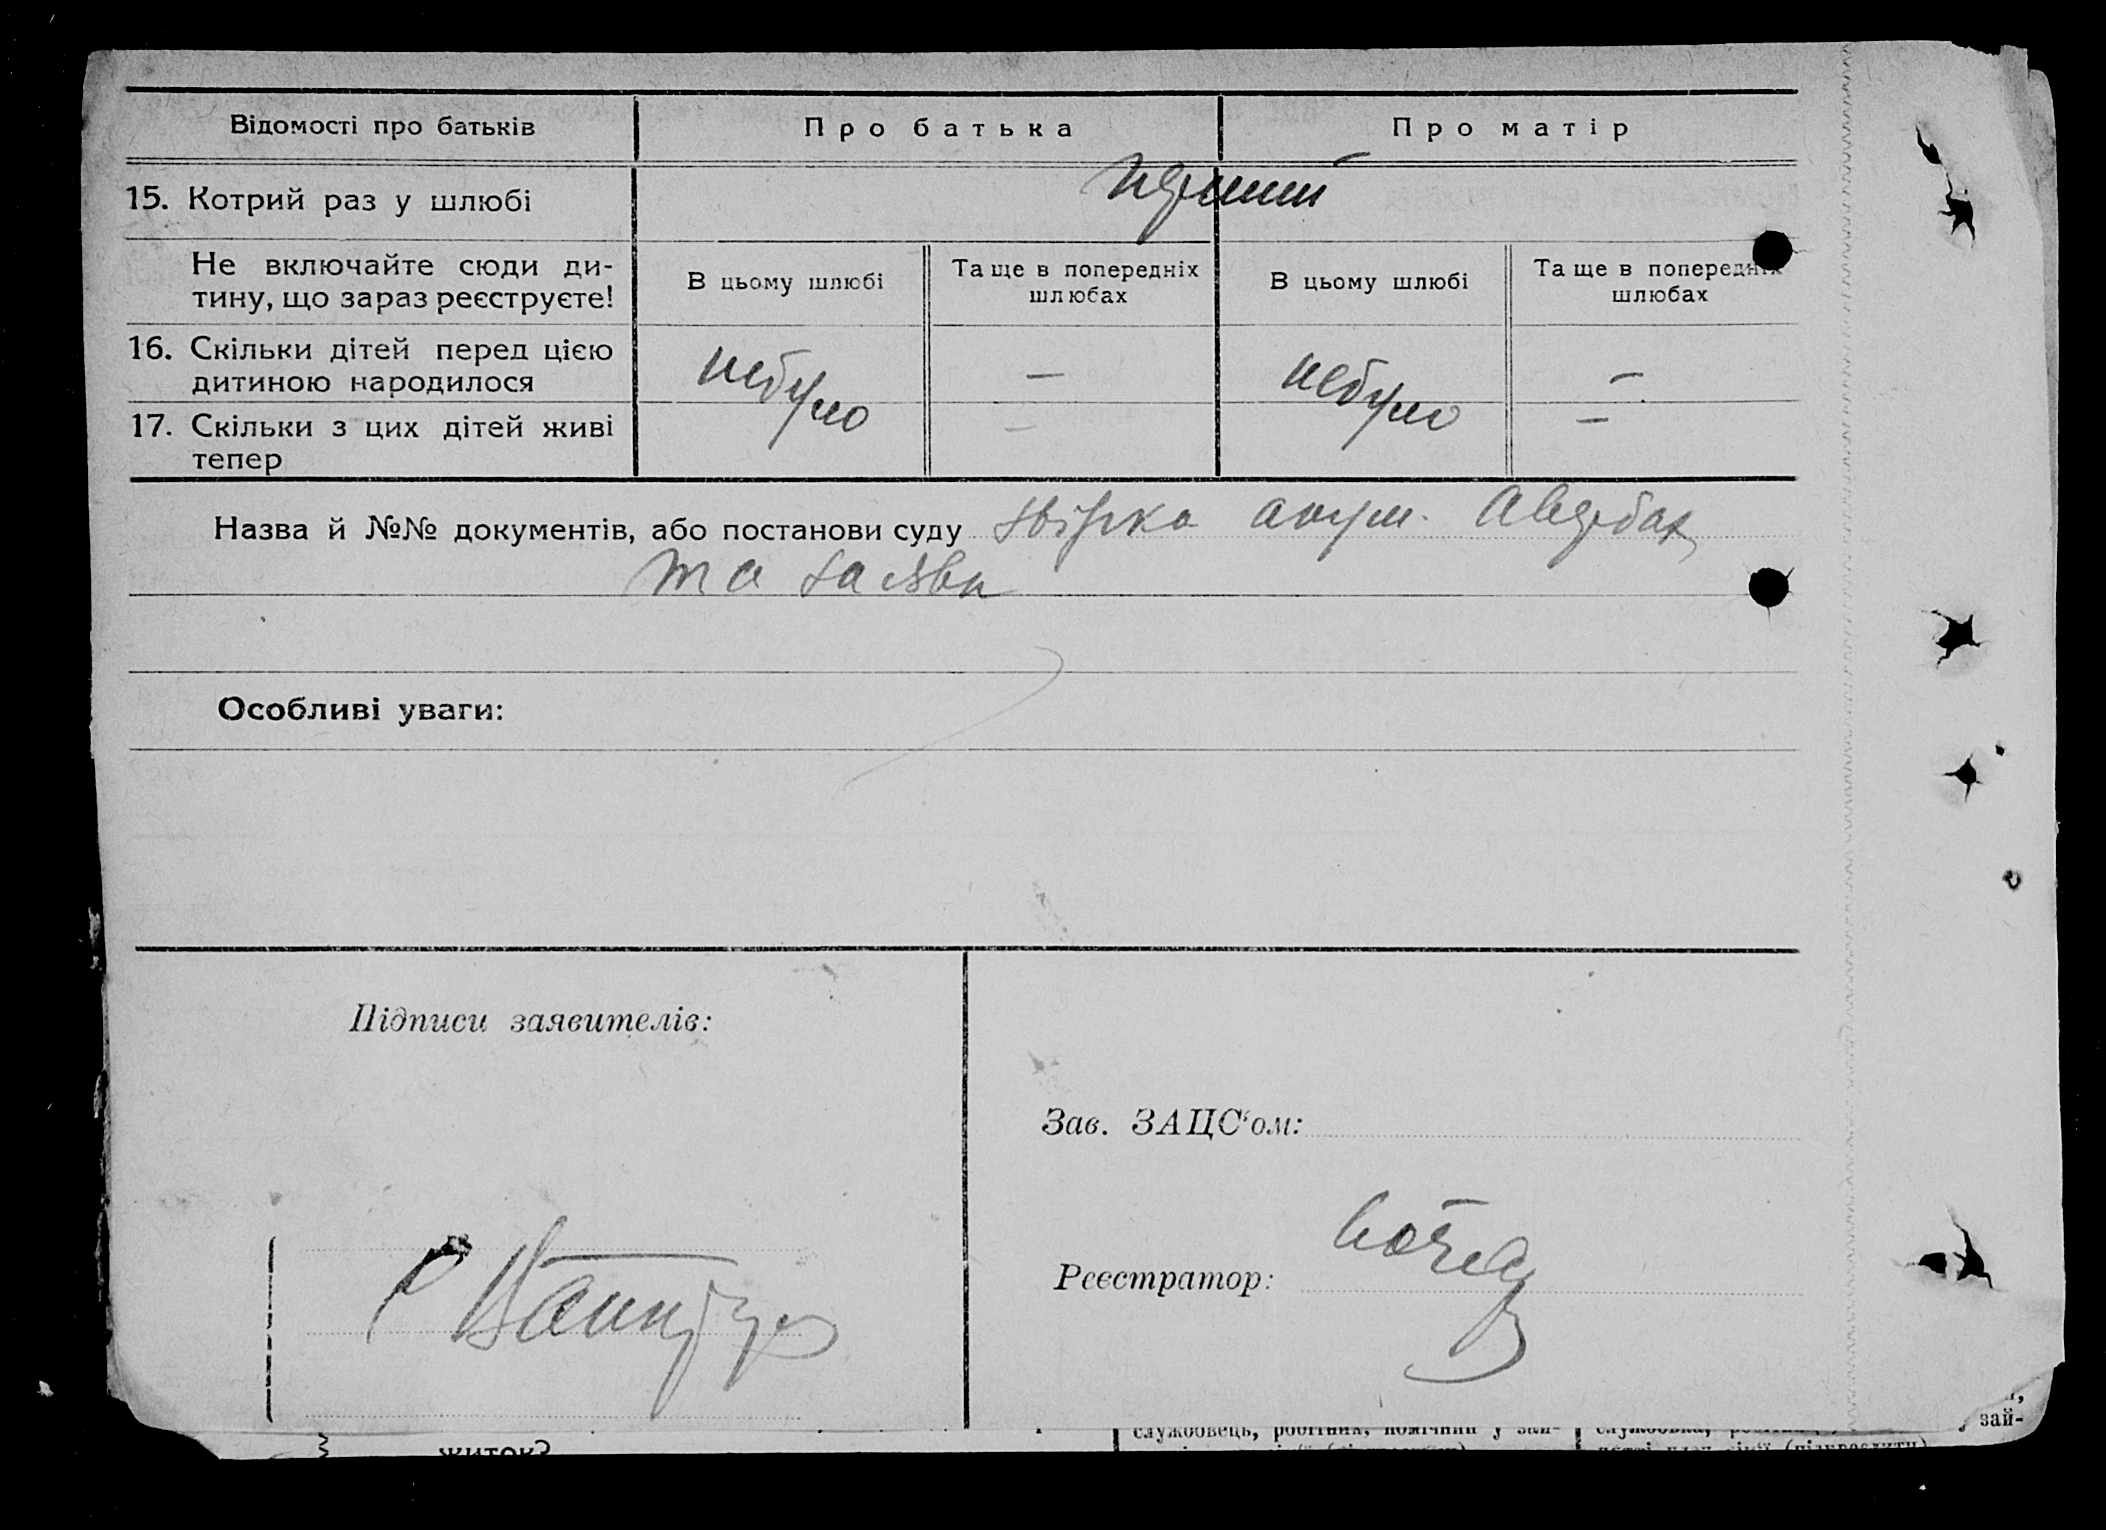 Відомості про батьків
Про батька
Про матір
15. Котрий раз у шлюбі
перший
Не включайте сюди ди-
тину, що зараз реєструєте!
В цьому шлюбі
Та ще в попередніх
шлюбах
В цьому шлюбі
Та ще в попередніх
шлюбах
16. Скільки дітей перед цією
дитиною народилося
небуло
—
небуло
—
17. Скільки з цих дітей живі
тепер
—
—
Назва й №№ документів, або постанови суду акуш. Авербах
та заява
Особливі уваги:
Підписи заявителів:
Зав. ЗАЦС‘ом:
Реєстратор:
службовець, робітник, помічний у зай-
зай-
житок?